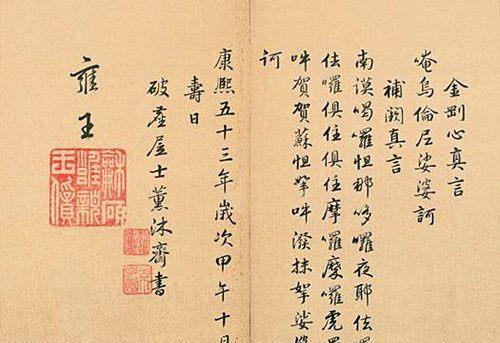 金剛心真言
唵烏倫尼娑婆訶
補闕真言
南謨喝囉怛那哆囉夜耶佉囉
佉囉俱住俱住摩囉摩囉虎囉
吽賀賀蘇怛拏吽潑抹拏娑婆
訶
康熙五十三年歲次甲午十
壽日
破塵居士薰沐齋書
雍王